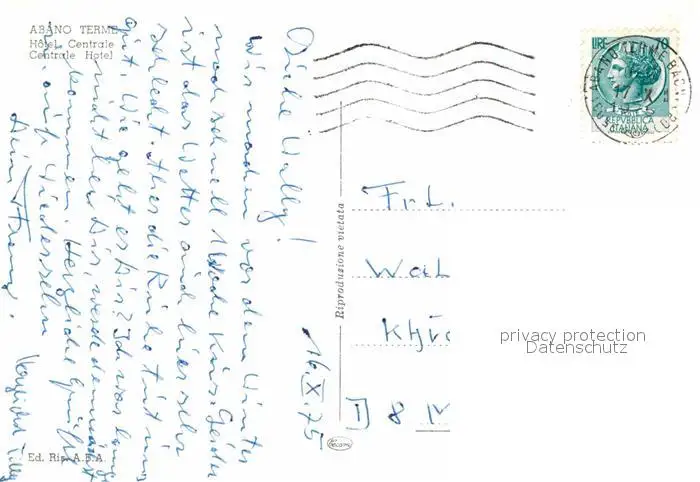 ABANO TERME
Hôtel Centrale
Centrale Hotel
Liebe Wally!
Wir machen vor dem Winter
noch schnell 1 Woche Kur. Leider
ist das Wetter auch hier sehr
schlecht. Aber die Ruhe tut uns
gut. Wie geht es Dir? Ich war lange
nicht bei Dir, werde demnächst
kommen. Herzliche Grüße
auf Wiedersehen
Dein
16.X.75
Ed. Rip. A.B.A.
Riproduzione vietata
LIRE 70
REPVBBLICA
ITALIANA
ABANO TERME
Frl.
Wal
D 8 M
privacy protection
Datenschutz